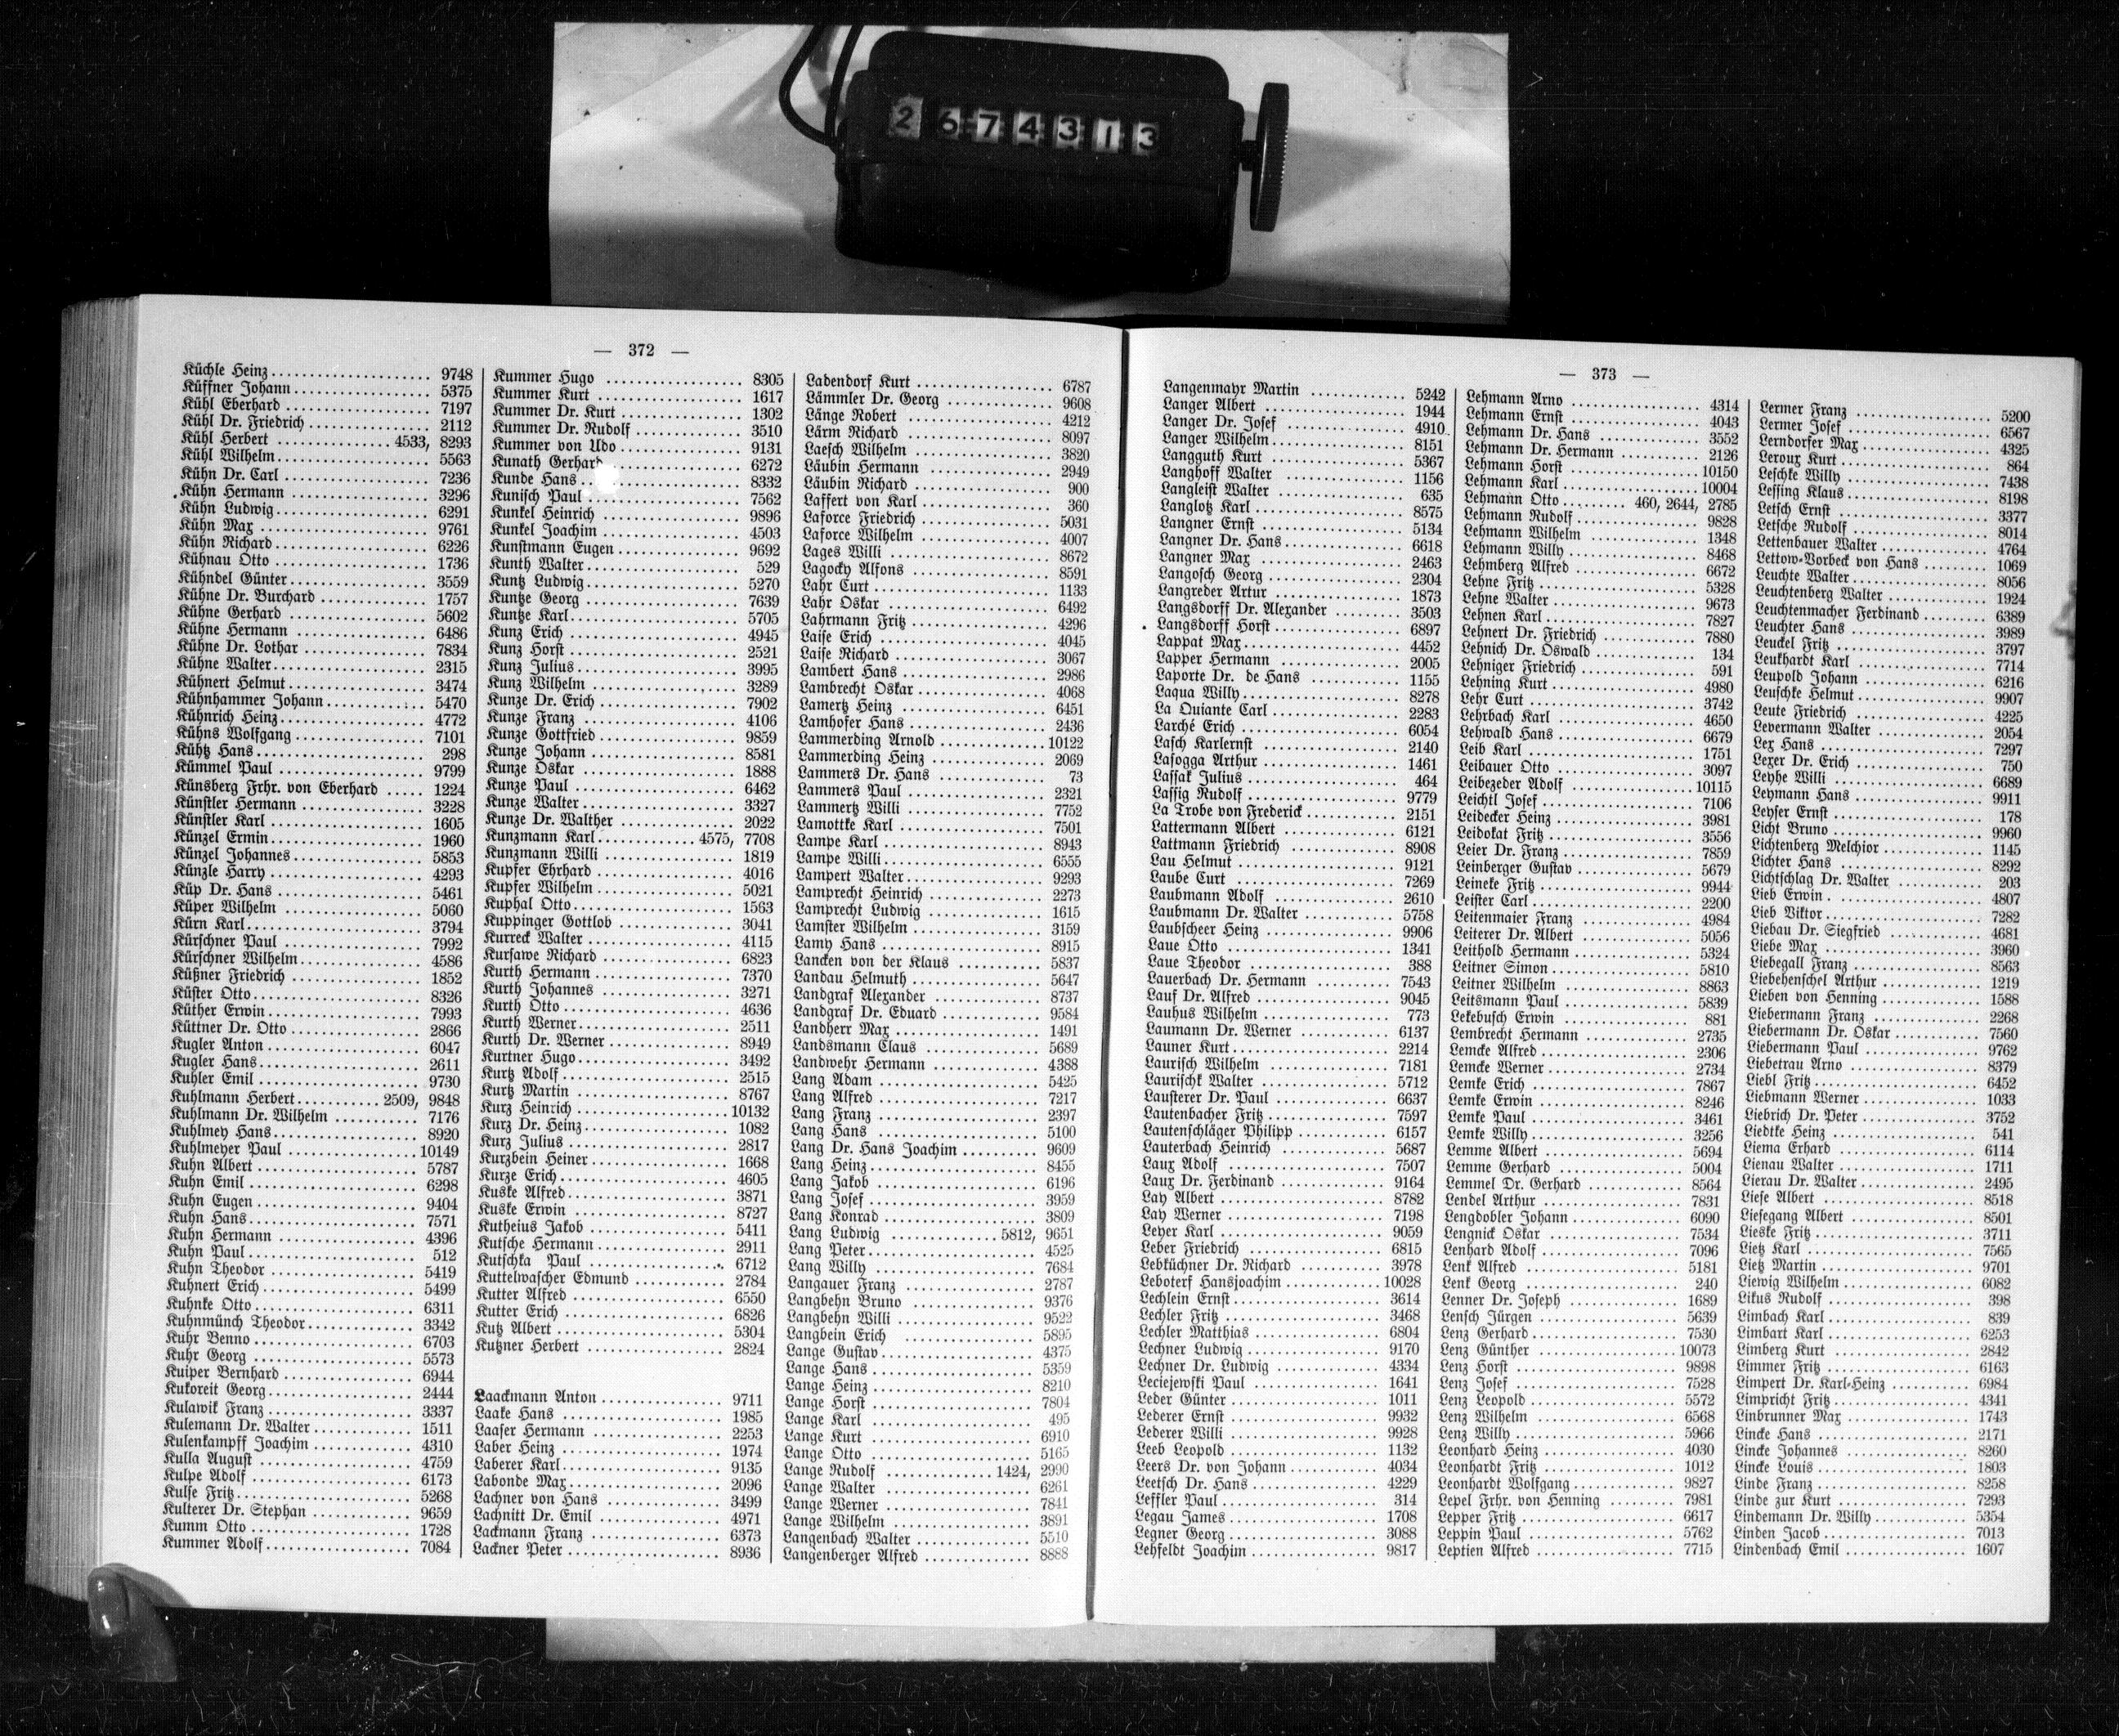 2 6 7 4 3 1 3
— 372 —
Küchle Heinz 9748
Küffner Johann 5375
Kühl Eberhard 7197
Kühl Dr. Friedrich 2112
Kühl Herbert 4533, 8293
Kühl Wilhelm 5563
Kühn Dr. Carl 7236
Kühn Hermann 3296
Kühn Ludwig 6291
Kühn Max 9761
Kühn Richard 6226
Kühnau Otto 1736
Kühndel Günter 3559
Kühne Dr. Burchard 1757
Kühne Gerhard 5602
Kühne Hermann 6486
Kühne Dr. Lothar 7834
Kühne Walter 2315
Kühnert Helmut 3474
Kühnhammer Johann 5470
Kühnrich Heinz 4772
Kühns Wolfgang 7101
Kühtz Hans 298
Kümmel Paul 9799
Künsberg Frhr. von Eberhard 1224
Künstler Hermann 3228
Künstler Karl 1605
Künzel Ermin 1960
Künzel Johannes 5853
Künzle Harry 4293
Küp Dr. Hans 5461
Küper Wilhelm 5060
Kürn Karl 3794
Kürschner Paul 7992
Kürschner Wilhelm 4586
Küßner Friedrich 1852
Küster Otto 8326
Küther Erwin 7993
Küttner Dr. Otto 2866
Kugler Anton 6047
Kugler Hans 2611
Kuhler Emil 9730
Kuhlmann Herbert 2509, 9848
Kuhlmann Dr. Wilhelm 7176
Kuhlmey Hans 8920
Kuhlmeyer Paul 10149
Kuhn Albert 5787
Kuhn Emil 6298
Kuhn Eugen 9404
Kuhn Hans 7571
Kuhn Hermann 4396
Kuhn Paul 512
Kuhn Theodor 5419
Kuhnert Erich 5499
Kuhnke Otto 6311
Kuhnmünch Theodor 3342
Kuhr Benno 6703
Kuhr Georg 5573
Kuiper Bernhard 6944
Kukoreit Georg 2444
Kulawik Franz 3337
Kulemann Dr. Walter 1511
Kulenkampff Joachim 4310
Kulla August 4759
Kulpe Adolf 6173
Kulse Fritz 5268
Kulterer Dr. Stephan 9659
Kumm Otto 1728
Kummer Adolf 7084
Kummer Hugo 8305
Kummer Kurt 1617
Kummer Dr. Kurt 1302
Kummer Dr. Rudolf 3510
Kummer von Udo 9131
Kunath Gerhard 6272
Kunde Hans 8332
Kunisch Paul 7562
Kunkel Heinrich 9896
Kunkel Joachim 4503
Kunstmann Eugen 9692
Kunth Walter 529
Kuntz Ludwig 5270
Kuntze Georg 7639
Kuntze Karl 5705
Kunz Erich 4945
Kunz Horst 2521
Kunz Julius 3995
Kunz Wilhelm 3289
Kunze Dr. Erich 7902
Kunze Franz 4106
Kunze Gottfried 9859
Kunze Johann 8581
Kunze Oskar 1888
Kunze Paul 6462
Kunze Walter 3327
Kunze Dr. Walther 2022
Kunzmann Karl 4575, 7708
Kunzmann Willi 1819
Kupfer Ehrhard 4016
Kupfer Wilhelm 5021
Kuphal Otto 1563
Kuppinger Gottlob 3041
Kurreck Walter 4115
Kursawe Richard 6823
Kurth Hermann 7370
Kurth Johannes 3271
Kurth Otto 4636
Kurth Werner 2511
Kurth Dr. Werner 8949
Kurtner Hugo 3492
Kurtz Adolf 2515
Kurtz Martin 8767
Kurz Heinrich 10132
Kurz Dr. Heinz 1082
Kurz Julius 2817
Kurzbein Heiner 1668
Kurze Erich 4605
Kuske Alfred 3871
Kuske Erwin 8727
Kutheius Jakob 5411
Kutsche Hermann 2911
Kutschka Paul 6712
Kuttelwascher Edmund 2784
Kutter Alfred 6550
Kutter Erich 6826
Kutz Albert 5304
Kutzner Herbert 2824
Laackmann Anton 9711
Laake Hans 1985
Laaser Hermann 2253
Laber Heinz 1974
Laberer Karl 9135
Labonde Max 2096
Lachner von Hans 3499
Lachnitt Dr. Emil 4971
Lackmann Franz 6373
Lackner Peter 8936
Ladendorf Kurt 6787
Lämmler Dr. Georg 9608
Länge Robert 4212
Lärm Richard 8097
Laesch Wilhelm 3820
Läubin Hermann 2949
Läubin Richard 900
Laffert von Karl 360
Laforce Friedrich 5031
Laforce Wilhelm 4007
Lages Willi 8672
Lagocky Alfons 8591
Lahr Curt 1133
Lahr Oskar 6492
Lahrmann Fritz 4296
Laise Erich 4045
Laise Richard 3067
Lambert Hans 2986
Lambrecht Oskar 4068
Lamertz Heinz 6451
Lamhofer Hans 2436
Lammerding Arnold 10122
Lammerding Heinz 2069
Lammers Dr. Hans 73
Lammers Paul 2321
Lammertz Willi 7752
Lamottke Karl 7501
Lampe Karl 8943
Lampe Willi 6555
Lampert Walter 9293
Lamprecht Heinrich 2273
Lamprecht Ludwig 1615
Lamster Wilhelm 3159
Lamy Hans 8915
Lancken von der Klaus 5837
Landau Helmuth 5647
Landgraf Alexander 8737
Landgraf Dr. Eduard 9584
Landherr Max 1491
Landsmann Claus 5689
Landwehr Hermann 4388
Lang Adam 5425
Lang Alfred 7217
Lang Franz 2397
Lang Hans 5100
Lang Dr. Hans Joachim 9609
Lang Heinz 8455
Lang Jakob 6196
Lang Josef 3959
Lang Konrad 3809
Lang Ludwig 5812, 9651
Lang Peter 4525
Lang Willy 7684
Langauer Franz 2787
Langbehn Bruno 9376
Langbehn Willi 9522
Langbein Erich 5895
Lange Gustav 4375
Lange Hans 5359
Lange Heinz 8210
Lange Horst 7804
Lange Karl 495
Lange Kurt 6910
Lange Otto 5165
Lange Rudolf 1424, 2990
Lange Walter 6261
Lange Werner 7841
Lange Wilhelm 3891
Langenbach Walter 5510
Langenberger Alfred 8888
— 373 —
Langenmayr Martin 5242
Langer Albert 1944
Langer Dr. Josef 4910
Langer Wilhelm 8151
Langguth Kurt 5367
Langhoff Walter 1156
Langleist Walter 635
Langlotz Karl 8575
Langner Ernst 5134
Langner Dr. Hans 6618
Langner Max 2463
Langosch Georg 2304
Langreder Artur 1873
Langsdorff Dr. Alexander 3503
Langsdorff Horst 6897
Lappat Max 4452
Lapper Hermann 2005
Laporte Dr. de Hans 1155
Laqua Willy 8278
La Quiante Carl 2283
Larché Erich 6054
Lasch Karlernst 2140
Lasogga Arthur 1461
Lassak Julius 464
Lassig Rudolf 9779
La Trobe von Frederick 2151
Lattermann Albert 6121
Lattmann Friedrich 8908
Lau Helmut 9121
Laube Curt 7269
Laubmann Adolf 2610
Laubmann Dr. Walter 5758
Laubscheer Heinz 9906
Laue Otto 1341
Laue Theodor 388
Lauerbach Dr. Hermann 7543
Lauf Dr. Alfred 9045
Lauhus Wilhelm 773
Laumann Dr. Werner 6137
Launer Kurt 2214
Laurisch Wilhelm 7181
Laurischk Walter 5712
Lausterer Dr. Paul 6637
Lautenbacher Fritz 7597
Lautenschläger Philipp 6157
Lauterbach Heinrich 5687
Laux Adolf 7507
Laux Dr. Ferdinand 9164
Lay Albert 8782
Lay Werner 7198
Leyer Karl 9059
Leber Friedrich 6815
Lebküchner Dr. Richard 3978
Leboterf Hansjoachim 10028
Lechlein Ernst 3614
Lechler Fritz 3468
Lechler Matthias 6804
Lechner Ludwig 9170
Lechner Dr. Ludwig 4334
Leciejewski Paul 1641
Leder Günter 1011
Lederer Ernst 9932
Lederer Willi 9928
Leeb Leopold 1132
Leers Dr. von Johann 4034
Leetsch Dr. Hans 4229
Leffler Paul 314
Legau James 1708
Legner Georg 3088
Lehfeldt Joachim 9817
Lehmann Arno 4314
Lehmann Ernst 4043
Lehmann Dr. Hans 3552
Lehmann Dr. Hermann 2126
Lehmann Horst 10150
Lehmann Karl 10004
Lehmann Otto 460, 2644, 2785
Lehmann Rudolf 9828
Lehmann Wilhelm 1348
Lehmann Willy 8468
Lehmberg Alfred 6672
Lehne Fritz 5328
Lehne Walter 9673
Lehnen Karl 7827
Lehnert Dr. Friedrich 7880
Lehnich Dr. Oswald 134
Lehniger Friedrich 591
Lehning Kurt 4980
Lehr Curt 3742
Lehrbach Karl 4650
Lehwald Hans 6679
Leib Karl 1751
Leibauer Otto 3097
Leibezeder Adolf 10115
Leichtl Josef 7106
Leidecker Heinz 3981
Leidokat Fritz 3556
Leier Dr. Franz 7859
Leinberger Gustav 5679
Leineke Fritz 9944
Leister Carl 2200
Leitenmaier Franz 4984
Leiterer Dr. Albert 5056
Leithold Hermann 5324
Leitner Simon 5810
Leitner Wilhelm 8863
Leitsmann Paul 5839
Lekebusch Erwin 881
Lembrecht Hermann 2735
Lemcke Alfred 2306
Lemcke Werner 2734
Lemke Erich 7867
Lemke Erwin 8246
Lemke Paul 3461
Lemke Willy 3256
Lemme Albert 5694
Lemme Gerhard 5004
Lemmel Dr. Gerhard 8564
Lendel Arthur 7831
Lengdobler Johann 6090
Lengnick Oskar 7534
Lenhard Adolf 7096
Lenk Alfred 5181
Lenk Georg 240
Lenner Dr. Joseph 1689
Lensch Jürgen 5639
Lenz Gerhard 7530
Lenz Günther 10073
Lenz Horst 9898
Lenz Josef 7528
Lenz Leopold 5572
Lenz Wilhelm 6568
Lenz Willy 5966
Leonhard Heinz 4030
Leonhardt Fritz 1012
Leonhardt Wolfgang 9827
Lepel Frhr. von Henning 7981
Lepper Fritz 6617
Leppin Paul 5762
Leptien Alfred 7715
Lermer Franz 5200
Lermer Josef 6567
Lerndorfer Max 4325
Leroux Kurt 864
Leschke Willy 7438
Lessing Klaus 8198
Letsch Ernst 3377
Letsche Rudolf 8014
Lettenbauer Walter 4764
Lettow-Vorbeck von Hans 1069
Leuchte Walter 8056
Leuchtenberg Walter 1924
Leuchtenmacher Ferdinand 6389
Leuchter Hans 3989
Leuckel Fritz 3797
Leukhardt Karl 7714
Leupold Johann 6216
Leuschke Helmut 9907
Leute Friedrich 4225
Levermann Walter 2054
Lex Hans 7297
Lexer Dr. Erich 750
Leyhe Willi 6689
Leymann Hans 9911
Leyser Ernst 178
Licht Bruno 9960
Lichtenberg Melchior 1145
Lichter Hans 8292
Lichtschlag Dr. Walter 203
Lieb Erwin 4807
Lieb Viktor 7282
Liebau Dr. Siegfried 4681
Liebe Max 3960
Liebegall Franz 8563
Liebehenschel Arthur 1219
Lieben von Henning 1588
Liebermann Franz 2268
Liebermann Dr. Oskar 7560
Liebermann Paul 9762
Liebetrau Arno 8379
Liebl Fritz 6452
Liebmann Werner 1033
Liebrich Dr. Peter 3752
Liedtke Heinz 541
Liema Erhard 6114
Lienau Walter 1711
Lierau Dr. Walter 2495
Liese Albert 8518
Liesegang Albert 8501
Lieske Fritz 3711
Lietz Karl 7565
Lietz Martin 9701
Liewig Wilhelm 6082
Likus Rudolf 398
Limbach Karl 839
Limbart Karl 6253
Limberg Kurt 2842
Limmer Fritz 6163
Limpert Dr. Karl-Heinz 6984
Limpricht Fritz 4341
Linbrunner Max 1743
Lincke Hans 2171
Lincke Johannes 8260
Lincke Louis 1803
Linde Franz 8258
Linde zur Kurt 7293
Lindemann Dr. Willy 5354
Linden Jacob 7013
Lindenbach Emil 1607